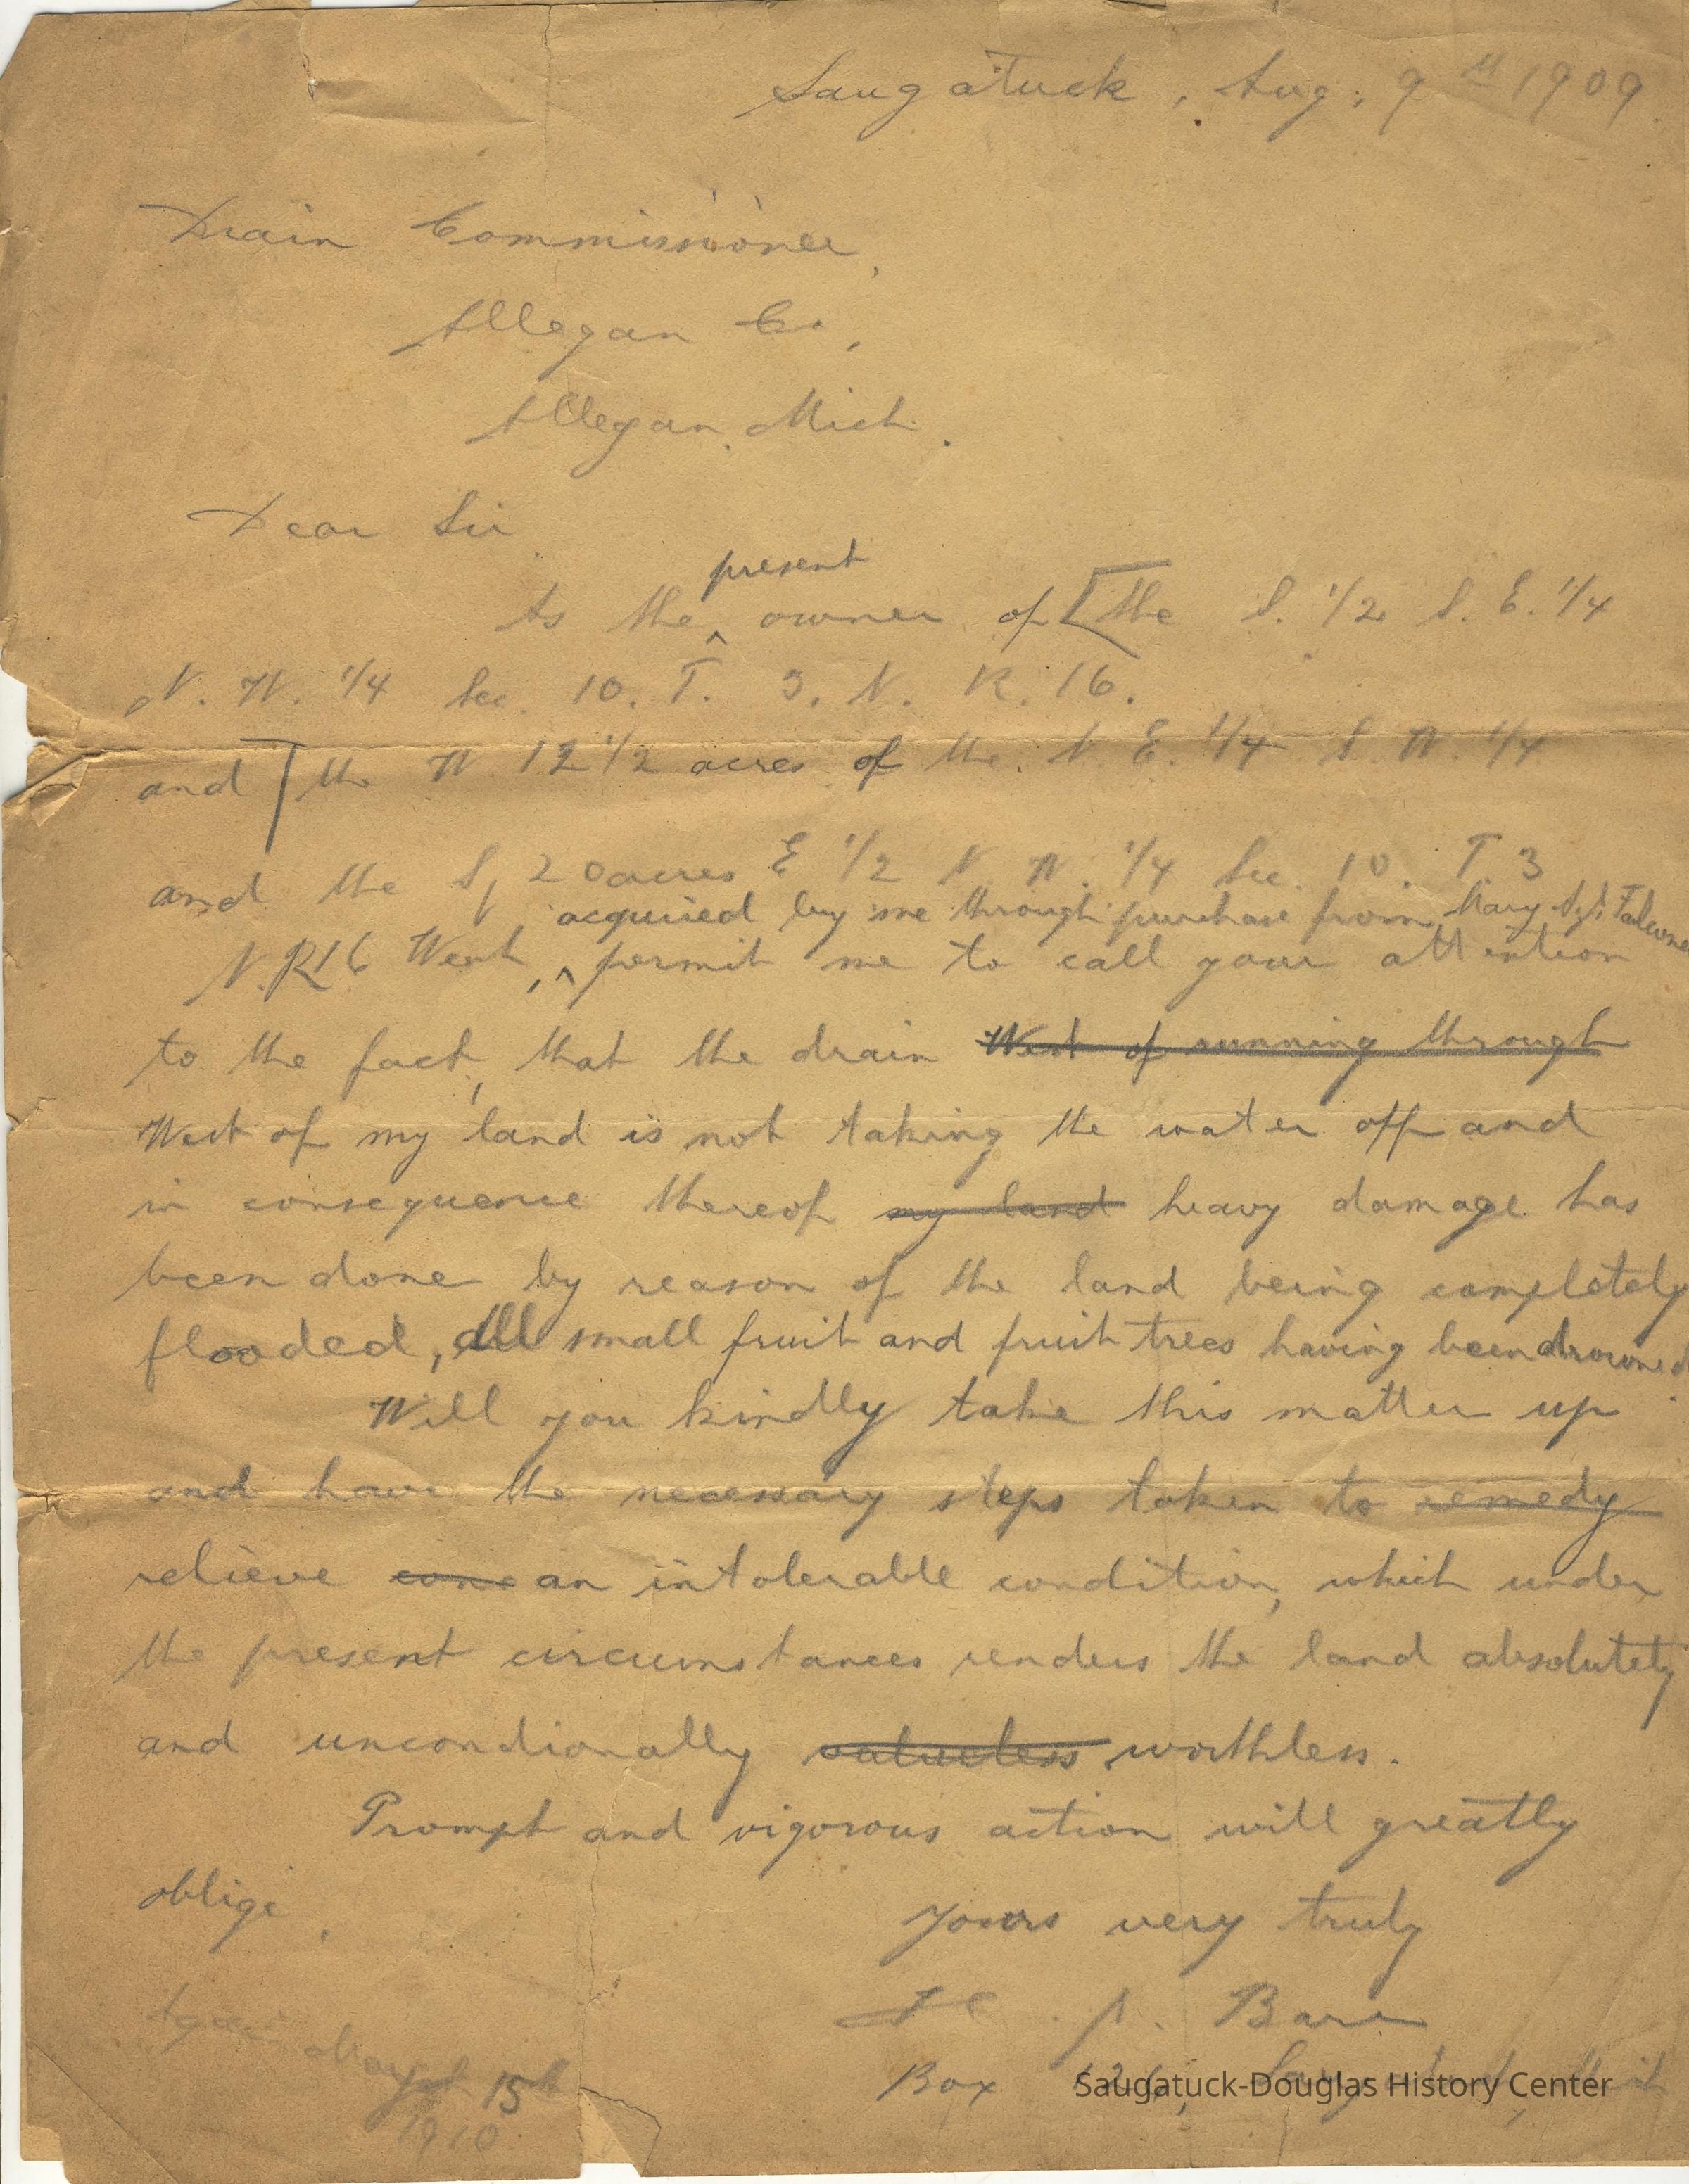 Saugatuck, Aug. 9th 1909
Drain Commissioner,
Allegan Co.,
Allegan, Mich.
Dear Sir,
present
As the ^ owner of [the S. 1/2 S. E. 1/4
N. W. 1/4 Sec. 10. T. 3. N. R. 16.
and ] the W 12 1/2 acres of the N. E. 1/4 S. W. 1/4
and the S, 20 acres E 1/2 N. W. 1/4 Sec. 10. T. 3
acquired by me through purchase from Mary
N. R 16 West, ^ permit me to call your attention
to the fact, that the drain West of running through
West of my land is not taking the water off and
in consequence thereof my land heavy damage has
been done by reason of the land being completely
flooded, all small fruit and fruit trees having been drowned.
Will you kindly take this matter up
and have the necessary steps taken to remedy
relieve an intolerable condition, which under
the present circumstances renders the land absolutely
and uncondionally valueless worthless.
Prompt and vigorous action will greatly
oblige,
Yours very truly
Barr
Box
Again May 15th
1910
Saugatuck-Douglas History Center